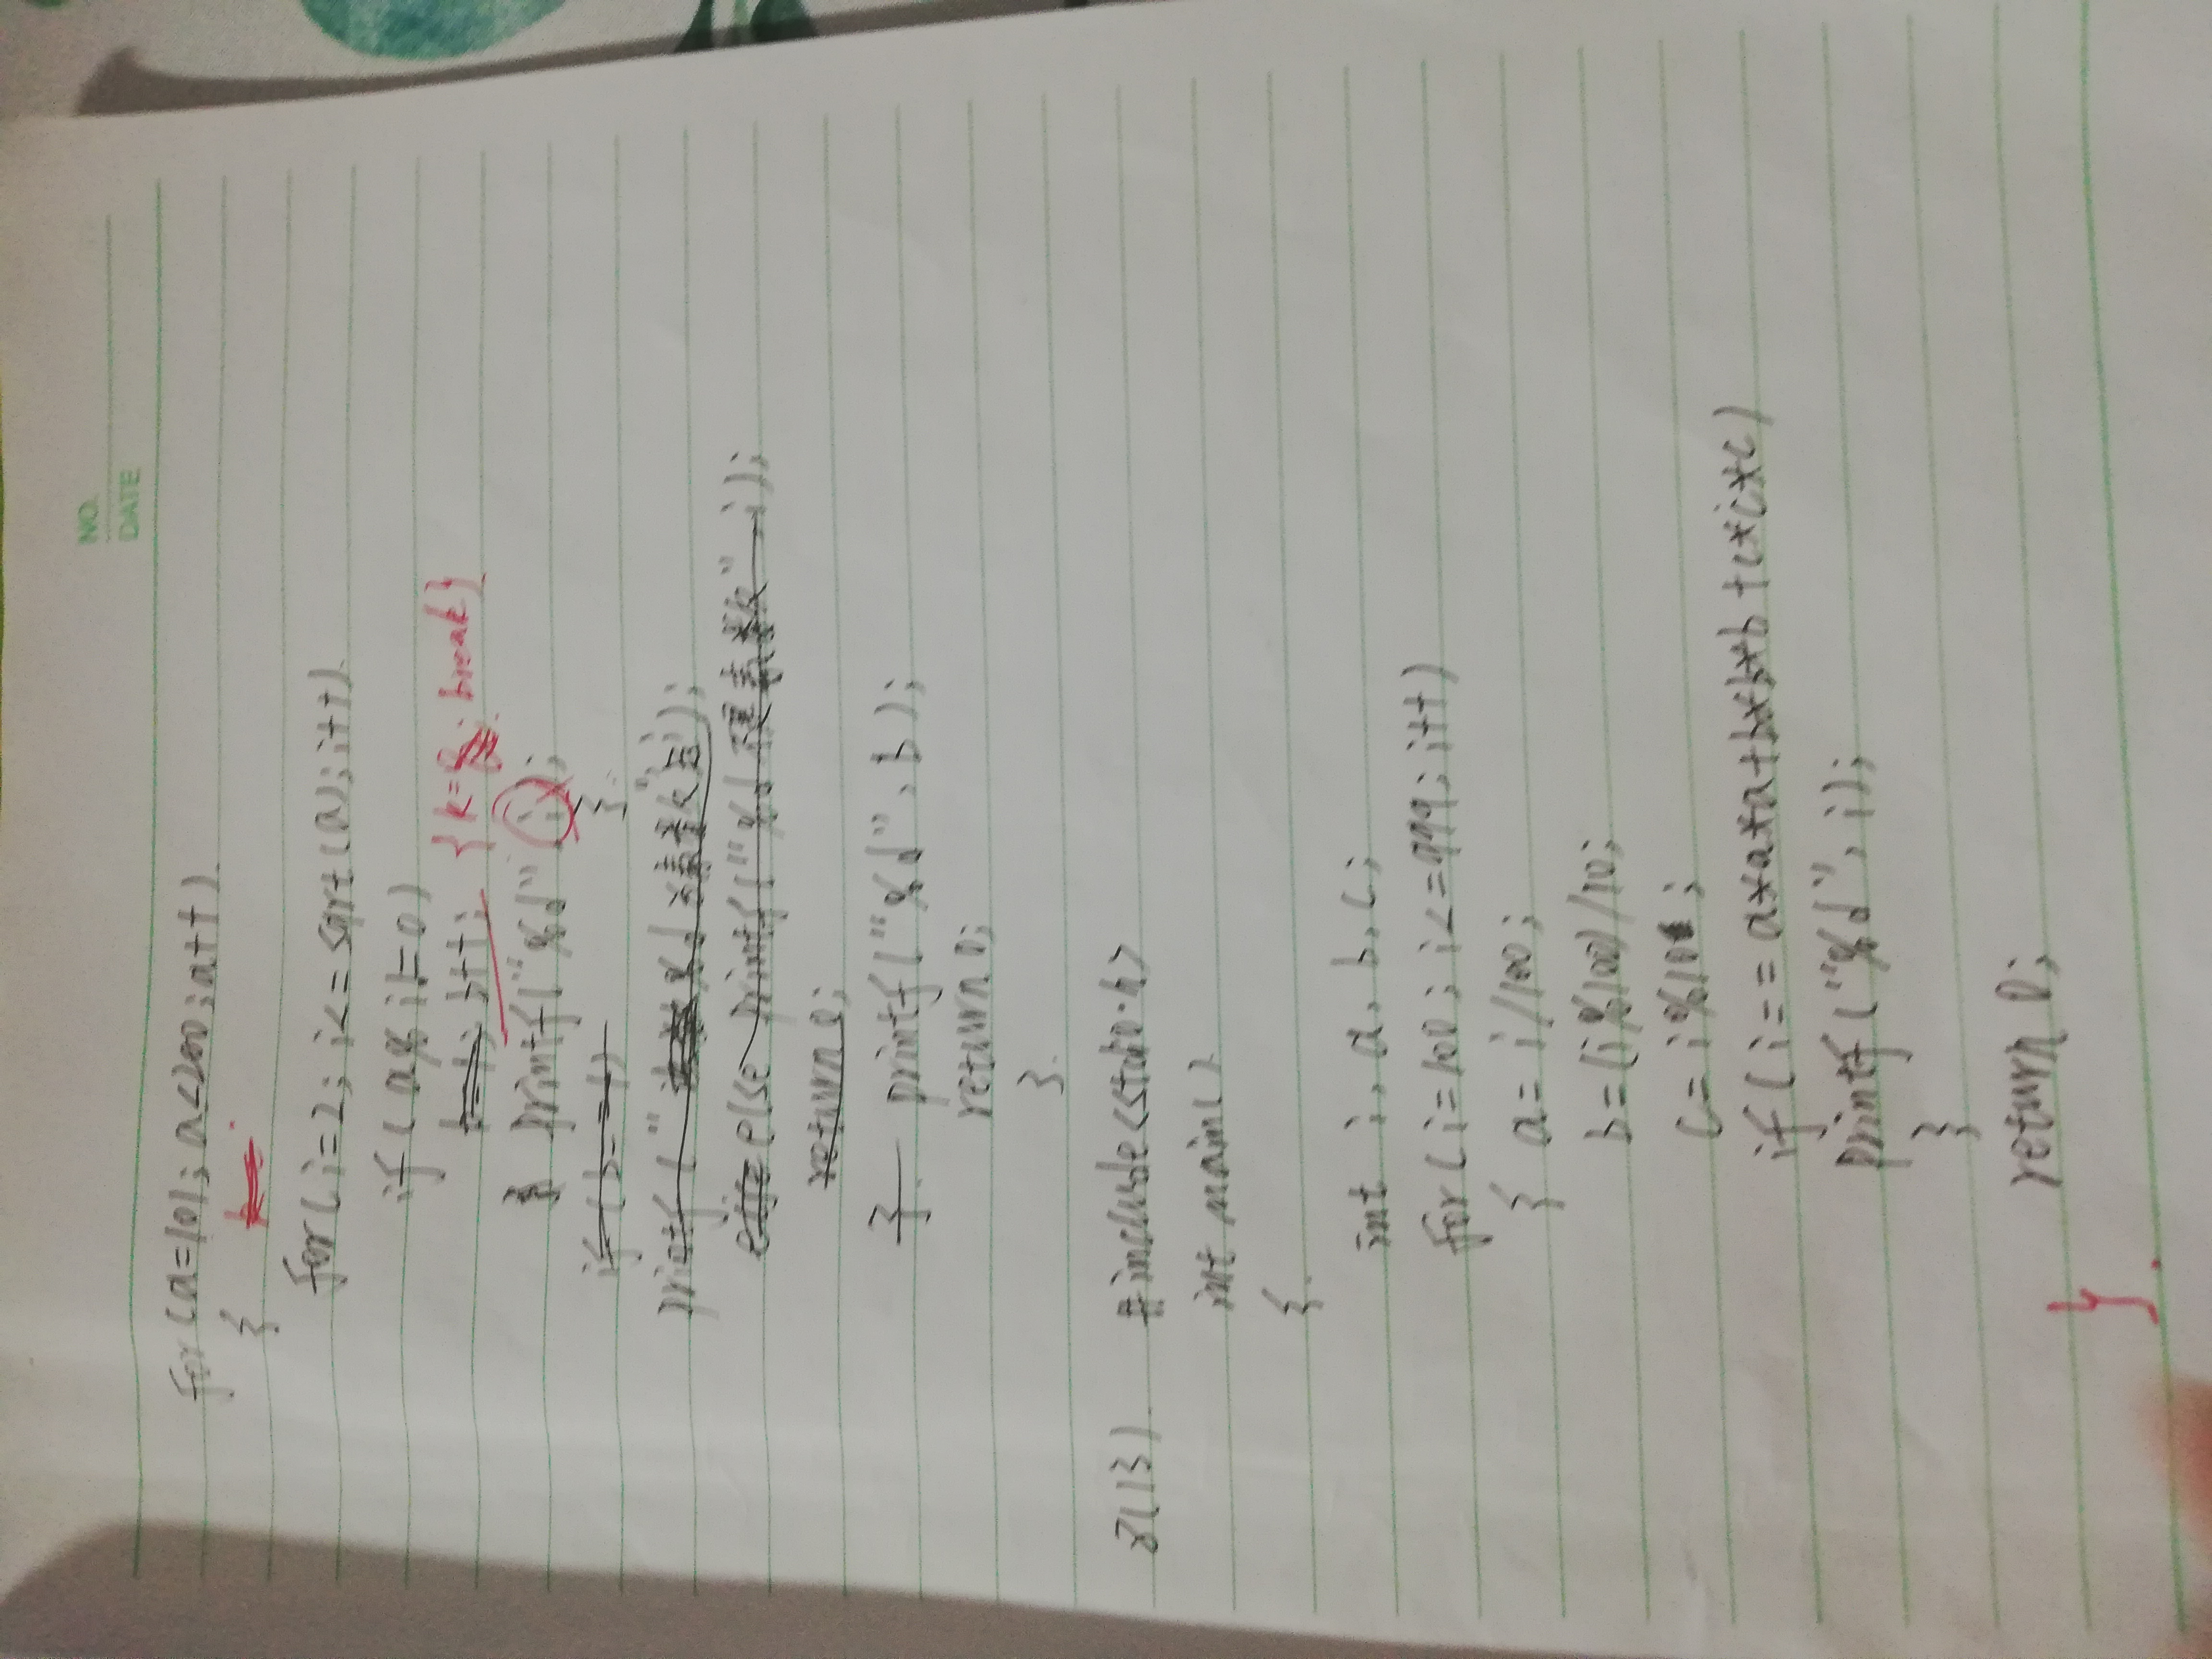 NO.
DATE
for(a=101;a<200;a++)
{
for(i=2;i<=sqrt(a);i++)
if(a%i!=0)
b=1; b++; {k=0;break}
printf("%d" i);
}
if(b==1)
printf("%d 是素数",i);
else printf("%d不是素数" i);
return 0;
} printf("%d",b);
return 0;
}
2(13) #include<stdio.h>
int main()
{
int i,a,b,c;
for(i=100;i<=999;i++)
{ a=i/100;
b=(i%100)/10;
c=i%10;
if(i==a*a*a+b*b*b+c*c*c)
printf("%d",i);
}
return 0;
}